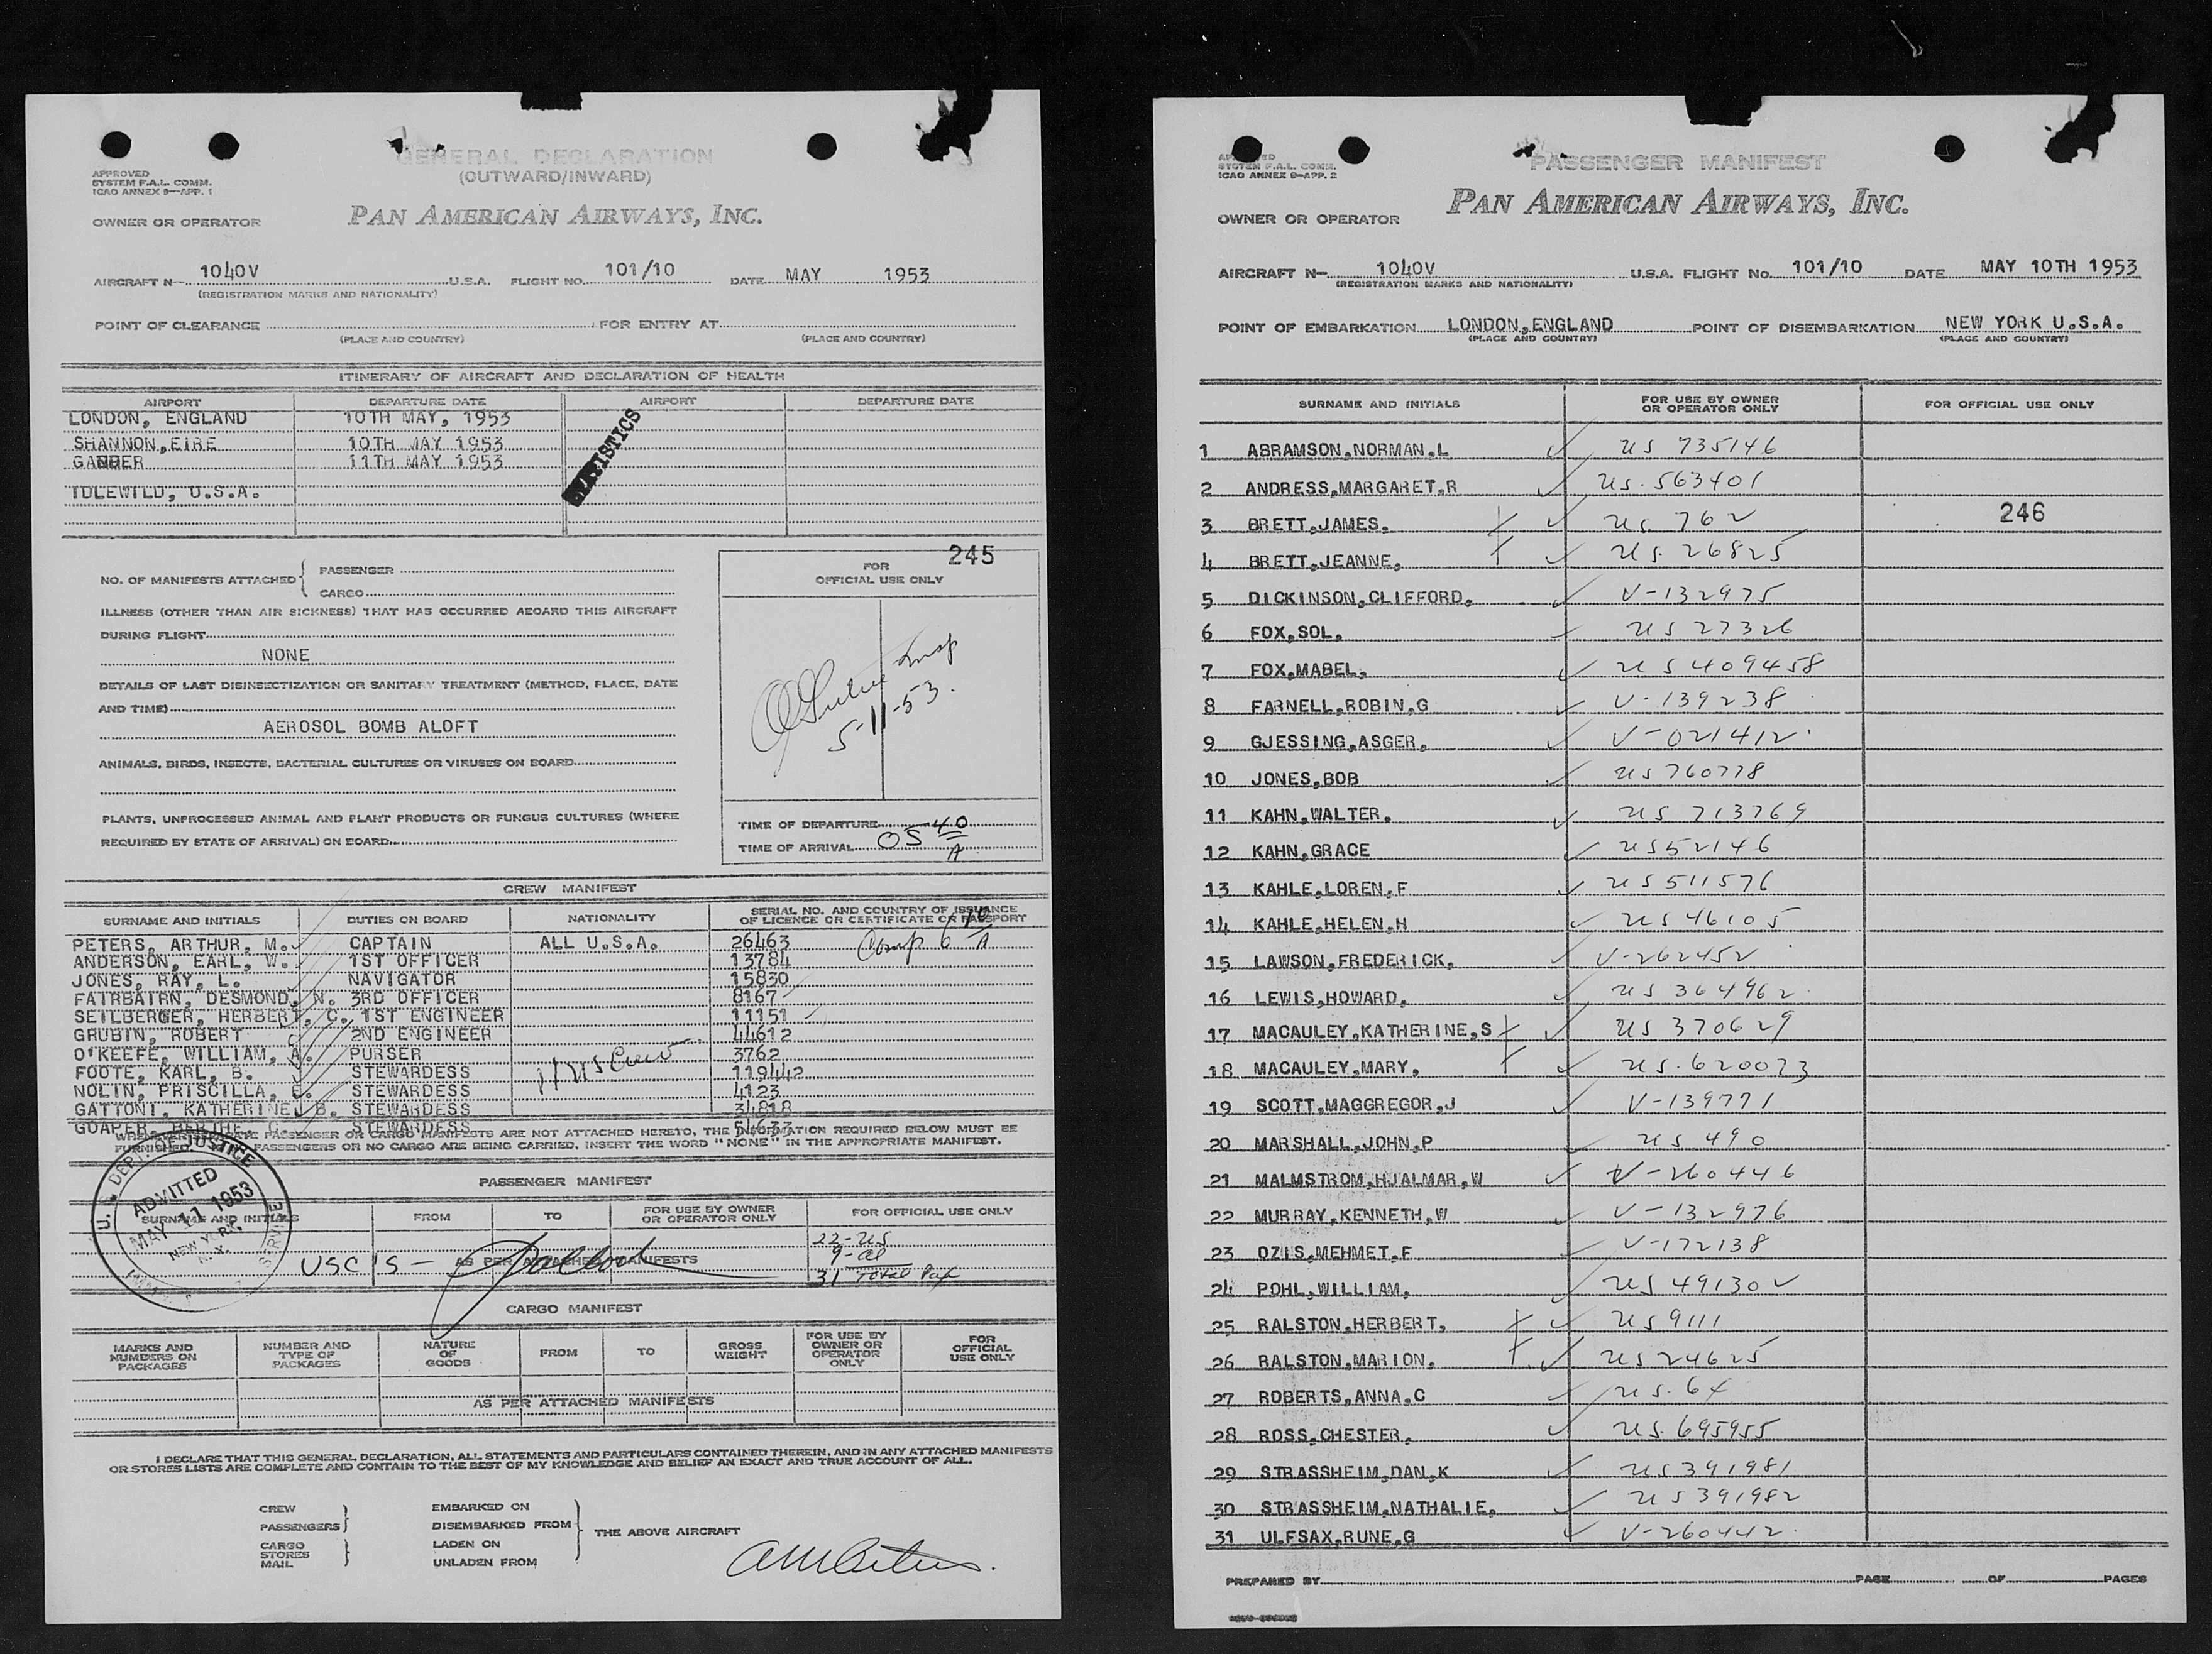 GENERAL DECLARATION
(OUTWARD/INWARD)
APPROVED
SYSTEM F.A.L. COMM.
ICAO ANNEX 9—APP. 1
OWNER OR OPERATOR
PAN AMERICAN AIRWAYS, INC.
AIRCRAFT N- 1040V U.S.A. FLIGHT NO. 101/10 DATE MAY 1953
(REGISTRATION MARKS AND NATIONALITY)
POINT OF CLEARANCE FOR ENTRY AT
(PLACE AND COUNTRY) (PLACE AND COUNTRY)
ITINERARY OF AIRCRAFT AND DECLARATION OF HEALTH
AIRPORT DEPARTURE DATE AIRPORT DEPARTURE DATE
LONDON, ENGLAND 10TH MAY, 1953
SHANNON,EIRE 10TH MAY 1953
GANDER 11TH MAY 1953
IDLEWILD, U.S.A.
245
NO. OF MANIFESTS ATTACHED { PASSENGER
CARGO
FOR
OFFICIAL USE ONLY
ILLNESS (OTHER THAN AIR SICKNESS) THAT HAS OCCURRED ABOARD THIS AIRCRAFT
DURING FLIGHT
NONE
DETAILS OF LAST DISINSECTIZATION OR SANITARY TREATMENT (METHOD, PLACE, DATE
AND TIME)
AEROSOL BOMB ALOFT
Insp
5-11-53.
ANIMALS, BIRDS, INSECTS, BACTERIAL CULTURES OR VIRUSES ON BOARD
PLANTS, UNPROCESSED ANIMAL AND PLANT PRODUCTS OR FUNGUS CULTURES (WHERE
REQUIRED BY STATE OF ARRIVAL) ON BOARD
TIME OF DEPARTURE
TIME OF ARRIVAL 05 40 A
CREW MANIFEST
SURNAME AND INITIALS DUTIES ON BOARD NATIONALITY SERIAL NO. AND COUNTRY OF ISSUANCE
OF LICENCE OR CERTIFICATE OR PASSPORT
PETERS, ARTHUR, M. CAPTAIN ALL U.S.A. 26463
ANDERSON, EARL, W. 1ST OFFICER 13784
JONES, RAY, L. NAVIGATOR 15830
FAIRBAIRN, DESMOND, N. 3RD OFFICER 8167
SEILBERGER, HERBERT, C. 1ST ENGINEER 11151
GRUBIN, ROBERT 2ND ENGINEER 44612
O'KEEFE, WILLIAM, A. PURSER 3762
FOOTE, KARL, B. STEWARDESS 119442
NOLIN, PRISCILLA, E. STEWARDESS 4123
GATTONI, KATHERINE, B. STEWARDESS 34818
BERTHE, C. STEWARDESS
11 US Crew
WHENEVER SEPARATE PASSENGER OR CARGO MANIFESTS ARE NOT ATTACHED HERETO, THE INFORMATION REQUIRED BELOW MUST BE
FURNISHED. PASSENGERS OR NO CARGO ARE BEING CARRIED, INSERT THE WORD "NONE" IN THE APPROPRIATE MANIFEST.
PASSENGER MANIFEST
U.S. DEPT. OF JUSTICE
ADMITTED
MAY 11 1953
NEW YORK,
N.Y.
SURNAME AND INITIALS FROM TO FOR USE BY OWNER
OR OPERATOR ONLY FOR OFFICIAL USE ONLY
22-US
9-al
31 Total Pax
USC'S —
AS PER ATTACHED MANIFESTS
CARGO MANIFEST
MARKS AND
NUMBERS ON
PACKAGES NUMBER AND
TYPE OF
PACKAGES NATURE
OF
GOODS FROM TO GROSS
WEIGHT FOR USE BY
OWNER OR
OPERATOR
ONLY FOR
OFFICIAL
USE ONLY
AS PER ATTACHED MANIFESTS
I DECLARE THAT THIS GENERAL DECLARATION, ALL STATEMENTS AND PARTICULARS CONTAINED THEREIN, AND IN ANY ATTACHED MANIFESTS
OR STORES LISTS ARE COMPLETE AND CONTAIN TO THE BEST OF MY KNOWLEDGE AND BELIEF AN EXACT AND TRUE ACCOUNT OF ALL.
CREW EMBARKED ON
PASSENGERS DISEMBARKED FROM THE ABOVE AIRCRAFT
CARGO LADEN ON
STORES
MAIL UNLADEN FROM
PASSENGER MANIFEST
APPROVED
SYSTEM F.A.L. COMM.
ICAO ANNEX 9—APP. 2
OWNER OR OPERATOR
PAN AMERICAN AIRWAYS, INC.
AIRCRAFT N- 1040V U.S.A. FLIGHT No. 101/10 DATE MAY 10TH 1953
(REGISTRATION MARKS AND NATIONALITY)
POINT OF EMBARKATION LONDON,ENGLAND POINT OF DISEMBARKATION NEW YORK U.S.A.
(PLACE AND COUNTRY) (PLACE AND COUNTRY)
SURNAME AND INITIALS FOR USE BY OWNER
OR OPERATOR ONLY FOR OFFICIAL USE ONLY
1 ABRAMSON,NORMAN.L US 735146
2 ANDRESS,MARGARET.R US. 563401
3 BRETT,JAMES. US. 762 246
4 BRETT,JEANNE. US. 26825
5 DICKINSON,CLIFFORD. V-132975
6 FOX,SOL. US 27326
7 FOX,MABEL. US 409458
8 FARNELL,ROBIN.G V-139238
9 GJESSING,ASGER. V-021412
10 JONES,BOB US 760778
11 KAHN,WALTER. US 713769
12 KAHN,GRACE US 52146
13 KAHLE,LOREN.F US 511576
14 KAHLE,HELEN.H US 46105
15 LAWSON,FREDERICK. V-262452
16 LEWIS,HOWARD. US 364962
17 MACAULEY,KATHERINE,S US 370629
18 MACAULEY,MARY. US. 620073
19 SCOTT,MAGGREGOR.J V-139771
20 MARSHALL,JOHN.P US 490
21 MALMSTROM,HJALMAR.W V-260446
22 MURRAY,KENNETH.W V-132976
23 OZIS,MEHMET.F V-172138
24 POHL,WILLIAM. US 491302
25 RALSTON,HERBERT. US 9111
26 RALSTON,MARION. US 24625
27 ROBERTS,ANNA.C US. 64
28 ROSS,CHESTER. US. 695955
29 STRASSHEIM,DAN.K US 391981
30 STRASSHEIM,NATHALIE. US 391982
31 ULFSAX,RUNE.G V-260442
PREPARED BY PAGE OF PAGES